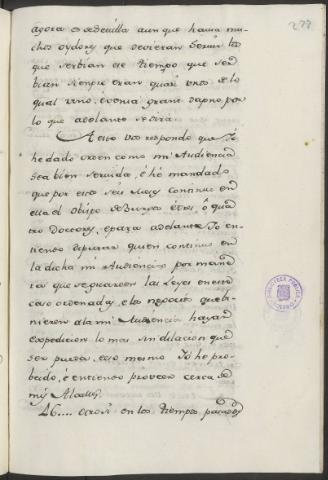 277
agora es sedevilla aun que havia mu-
chos oydores que devieran servir los
que serbian ese tiempo que ser
bian siempre eran quasi unos de lo
qual vino, é venia grant dapno por
lo que adelante se dirá.
A esto vos respondo que Yo
he dado orden como mi Audiencia
sea bien servida, é hé mandado
que por estos seis meses continue en
ella el Obispo de Burgos é tres ó qua
tro Doctores, é para adelante Yo en-
tiendo deputar quien continue en
la dicha mi Audiencia por mane
ra que se guarden las Leyes en este
caso ordenadas, e los negocios que bi-
nieren a la mi Audiencia hayan
expedicion lo mas sin dilacion que
ser pueda, eso mesmo Yo he pro-
beido, é entiendo proveer cerca de
mis Alcaldes.
46.... otrosi en los tiempos pasados
BIBLIOTECA PUBLICA